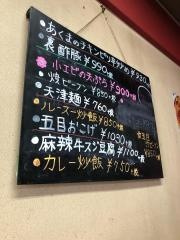 あくまのチキンピリ辛炒め ¥920
裏酢豚 ¥990
小エビの天ぷら ¥900
焼ビーフン ¥850
天津麺 ¥760
ルースー炒飯 ¥850
五目おこげ ¥1030
麻辣牛スジ豆腐 ¥1100
カレー炒飯 ¥750